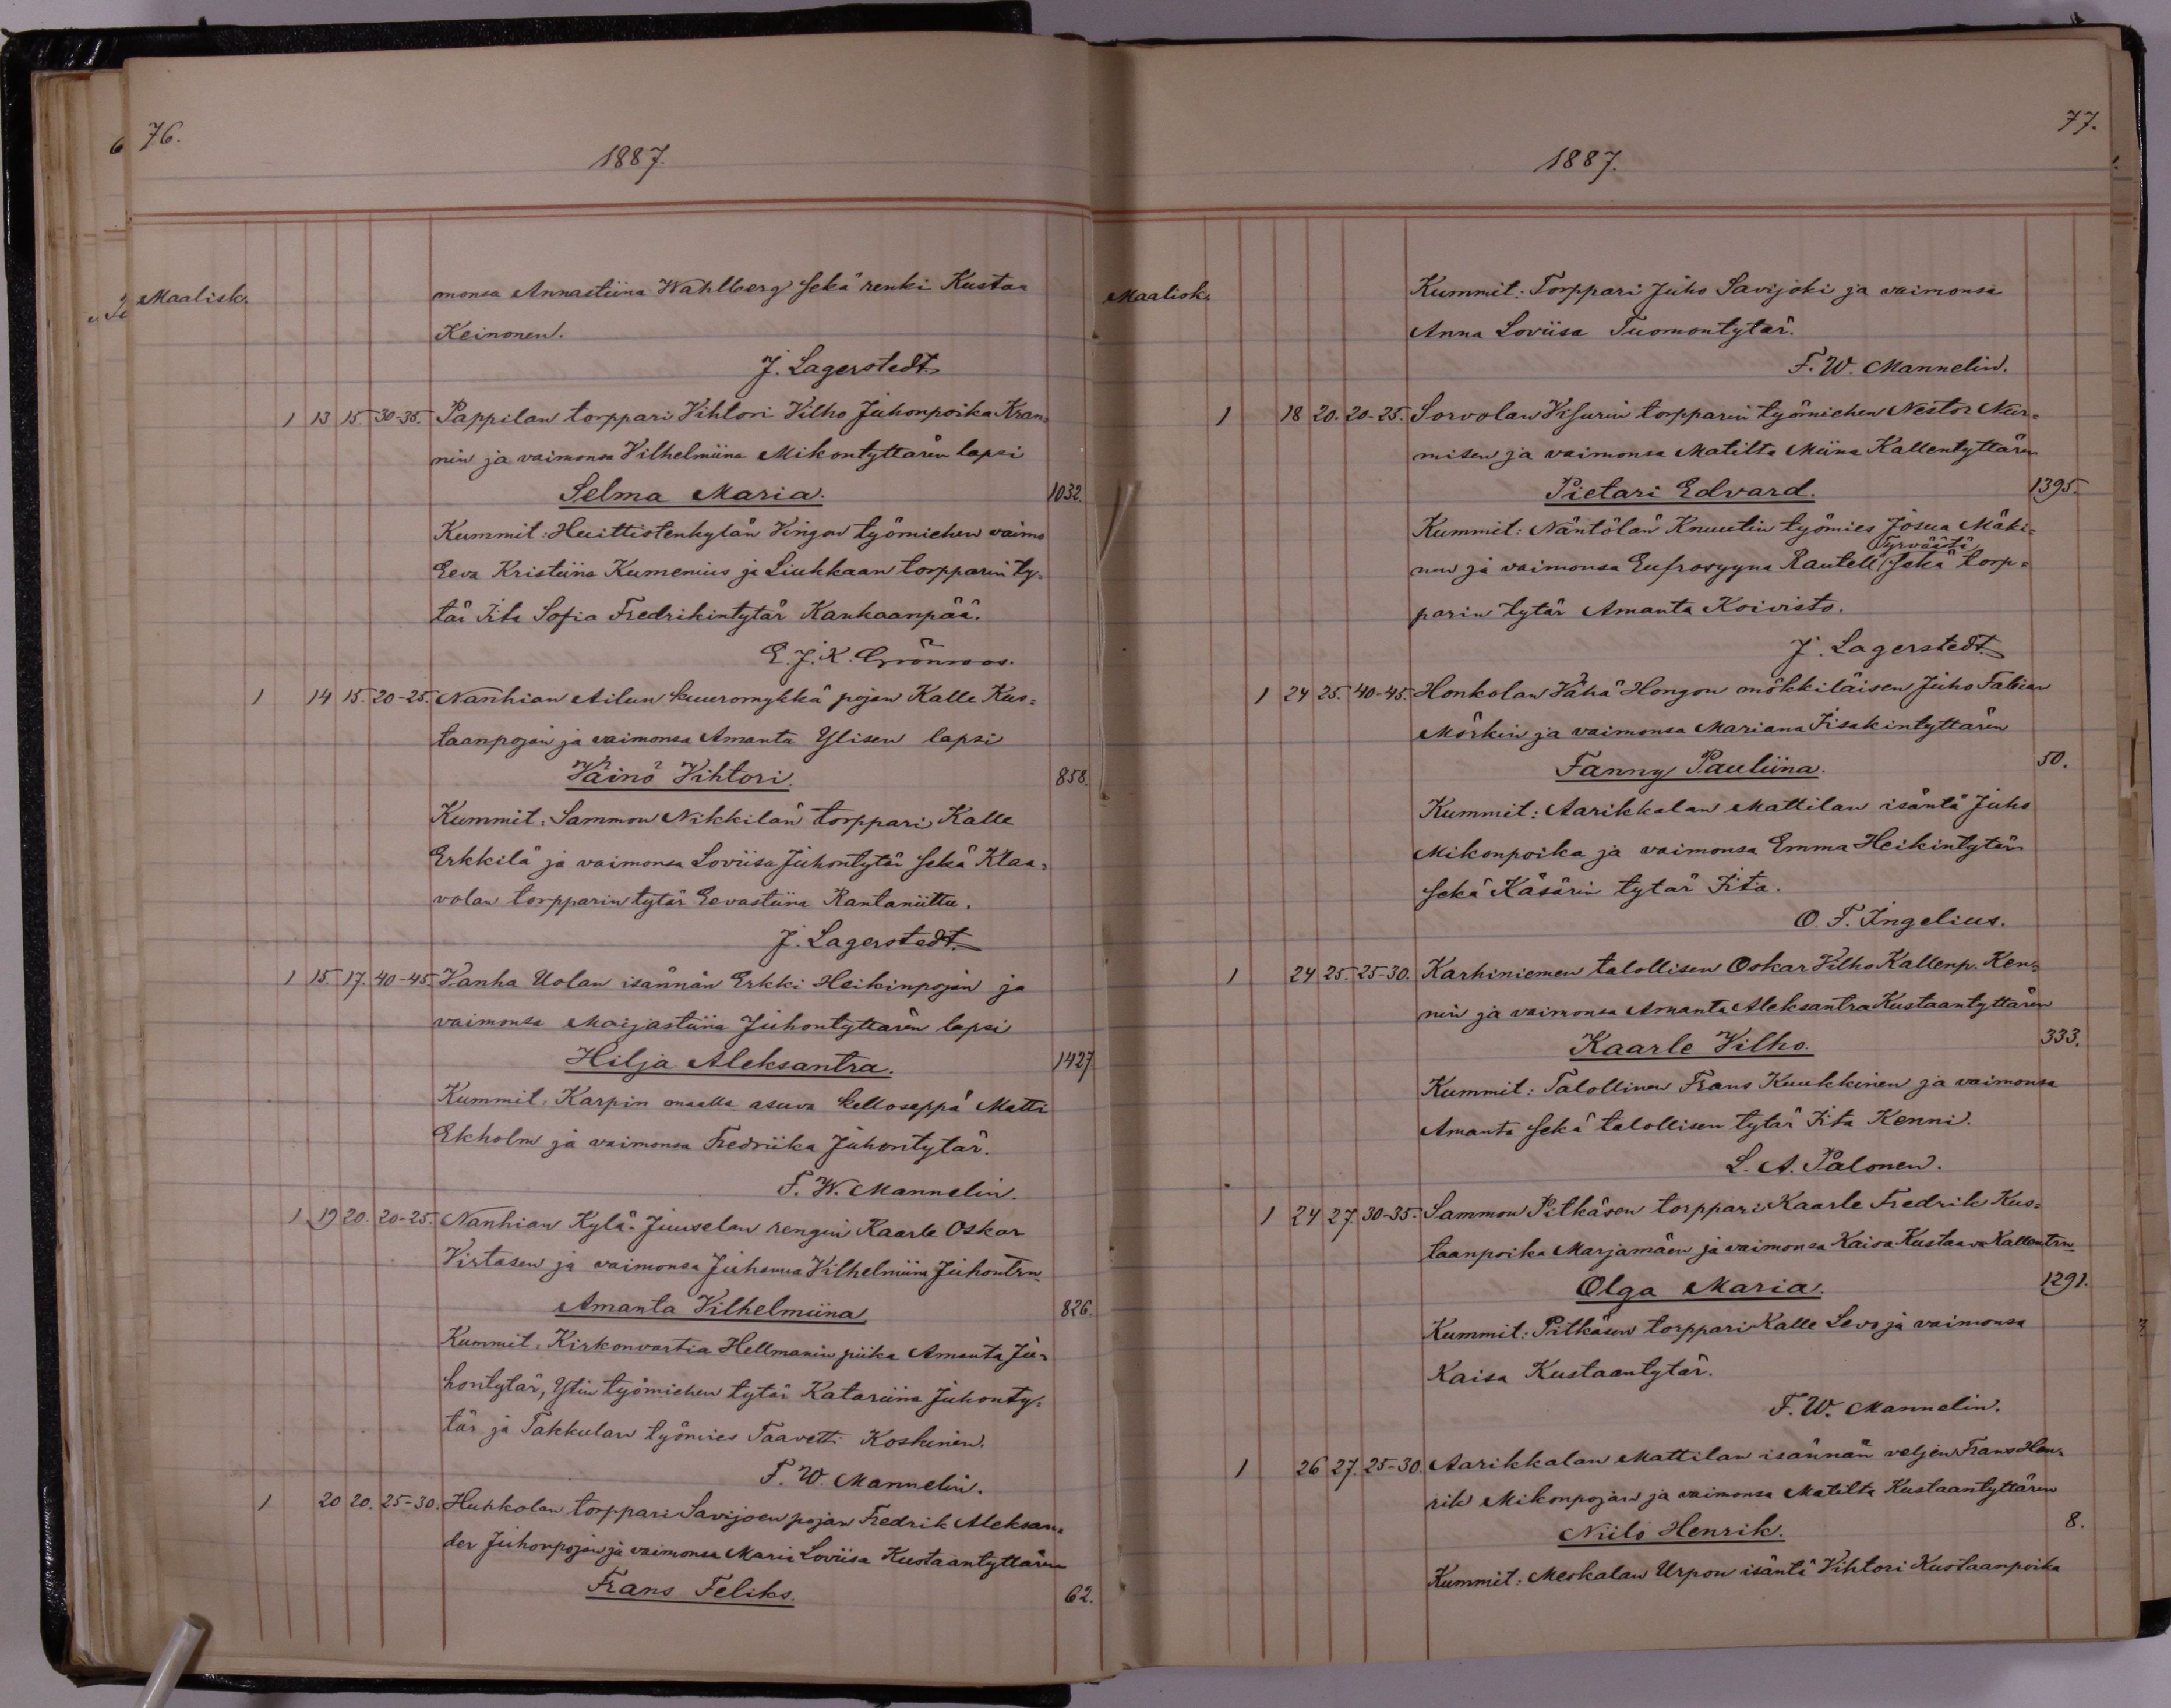 76.
1887.
Maalisk.
monsa Annastiina Wahlberg sekä renki Kustaa
Keinonen.
J. Lagerstedt.
1 13 15. 30-35. Pappilan torppari Vihtori Vilho Juhonpoika Kran=
nin ja vaimonsa Vilhelmiina Mikontyttären lapsi
Selma Maria. 1032.
Kummit: Huittistenkylän Vingon työmiehen vaimo
Eeva Kristiina Kumenius ja Liukkaan torpparin ty=
tär Iita Sofia Fredrikintytär Kankaanpää.
E. J. K. Grönroos.
1 14 15. 20-25. Nanhian Ailun kuuromykkä pojan Kalle Kus=
taanpojan ja vaimonsa Amanta Ylisen lapsi
Väinö Vihtori. 858.
Kummit: Sammon Nikkilän torppari Kalle
Erkkilä ja vaimonsa Loviisa Juhontytär sekä Klaa=
volan torpparin tytär Eevastiina Rantaniittu.
J. Lagerstedt.
1 15. 17. 40-45. Vanha Uolan isännän Erkki Heikinpojan ja
vaimonsa Maijastiina Juhontyttären lapsi
Hilja Aleksantra. 1427
Kummit: Karpin maalla asuva kelloseppä Matti
Ekholm ja vaimonsa Fredriika Juhontytär.
F. W. Mannelin.
1 19 20. 20-25. Nanhian Kylä-Juuselan rengin Kaarle Oskar
Virtasen ja vaimonsa Juhanna Vilhelmiina Juhontrn
Amanta Vilhelmiina 826.
Kummit: Kirkonvartia Hellmanin piika Amanta Ju=
hontytär, Ylin työmiehen tytär Katariina Juhonty=
tär ja Takkulan työmies Taavetti Koskinen.
F. W. Mannelin.
1 20 20. 25-30. Huhkolan torppari Savijoen pojan Fredrik Aleksan=
der Juhonpojan ja vaimonsa Maria Loviisa Kustaantyttären
Frans Feliks. 62.
77.
1887.
Maalisk.
Kummit: Torppari Juho Savijoki ja vaimonsa
Anna Loviisa Tuomontytär.
F. W. Mannelin.
1 18 20. 20-25. Sorvolan Visurin torpparin työmiehen Nestor Nur=
misen ja vaimonsa Matilta Miina Kallentyttären
Pietari Edvard. 1395.
Kummit: Näntölän Knuutin työmies Josua Mäki=
Tyrväästä
nen ja vaimonsa Eufrosyyna Rautell sekä torp=
parin tytär Amanta Koivisto.
J. Lagerstedt.
1 24 25. 40-45. Honkolan Vähä Hongon mökkiläisen Juho Fabian
Mörkin ja vaimonsa Mariana Iisakintyttären
Fanny Pauliina. 50.
Kummit: Aarikkalan Mattilan isäntä Juho
Mikonpoika ja vaimonsa Emma Heikintytär
sekä Käsärin tytär Iita.
O. F. Ingelius.
1 24 25. 25-30. Karhiniemen talollisen Oskar Vilho Kallenp. Ken=
nin ja vaimonsa Amanta Aleksantra Kustaantyttären
Kaarle Vilho. 333.
Kummit: Talollinen Frans Kuukkinen ja vaimonsa
Amanta sekä talollisen tytär Iita Kenni.
L. A. Palonen.
1 24 27. 30-35. Sammon Pitkäsen torppari Kaarle Fredrik Kus=
taanpoika Marjamäen ja vaimonsa Kaisa Kustaava Kallentrn
Olga Maria. 1291.
Kummit: Pitkäsen torppari Kalle Levo ja vaimonsa
Kaisa Kustaantytär.
F. W. Mannelin.
1 26 27. 25-30. Aarikkalan Mattilan isännän veljen Frans Hen=
rik Mikonpojan ja vaimonsa Matilta Kustaantyttären
Niilo Henrik. 8.
Kummit: Meskalan Urpon isäntä Vihtori Kustaanpoika